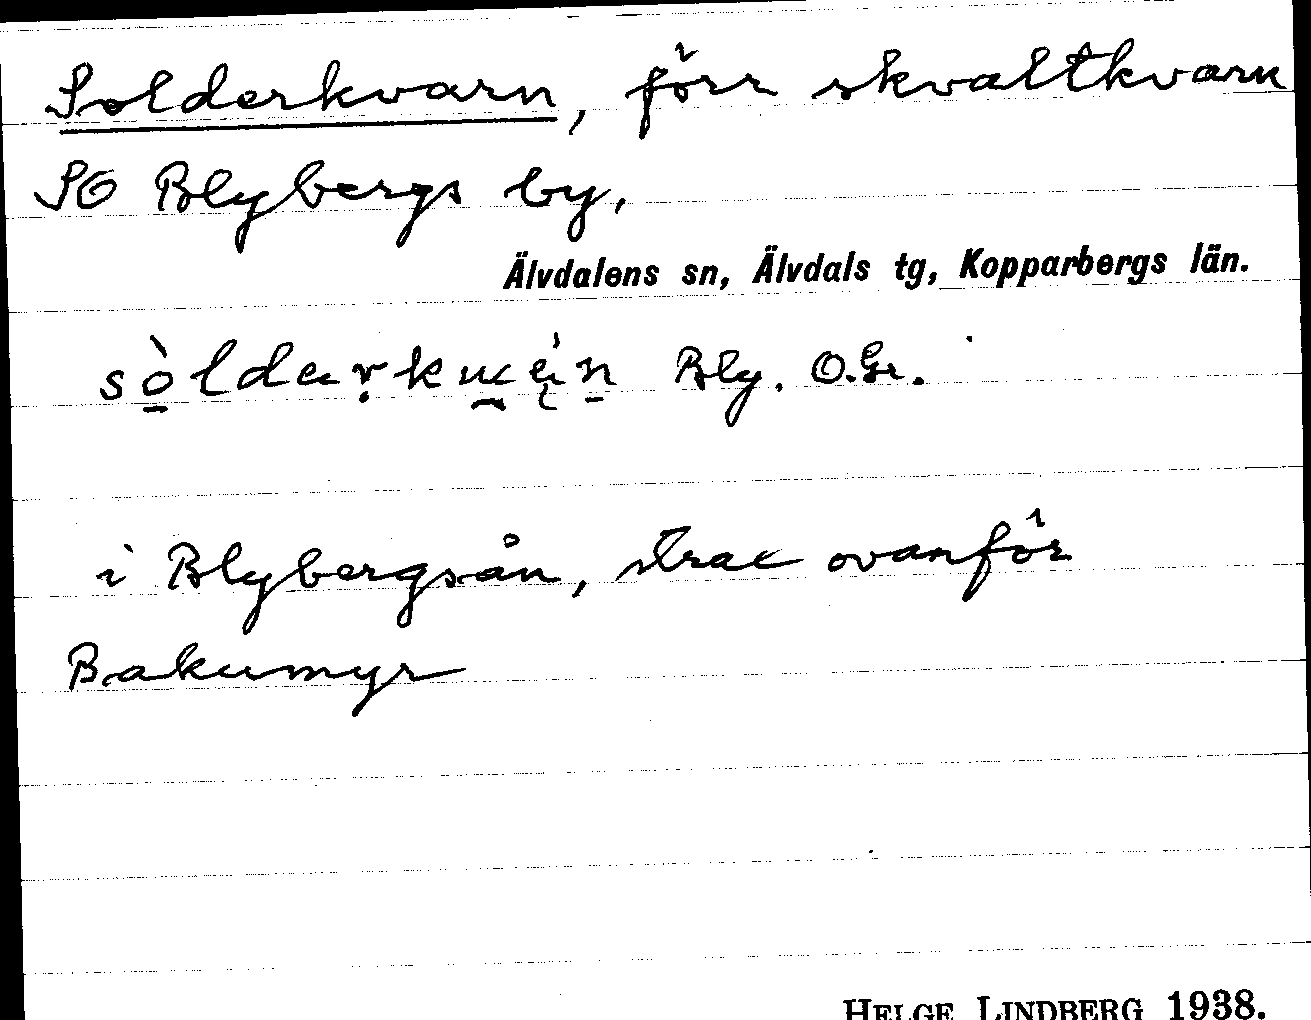 Solderkvarn, förr skvaltkvarn
SO Blybergs by,
Älvdalens sn, Älvdals tg, Kopparbergs län.
Bly. O.Gr.
i Blybergsån, strax ovanför
Bakumyr
HELGE LINDBERG 1938.